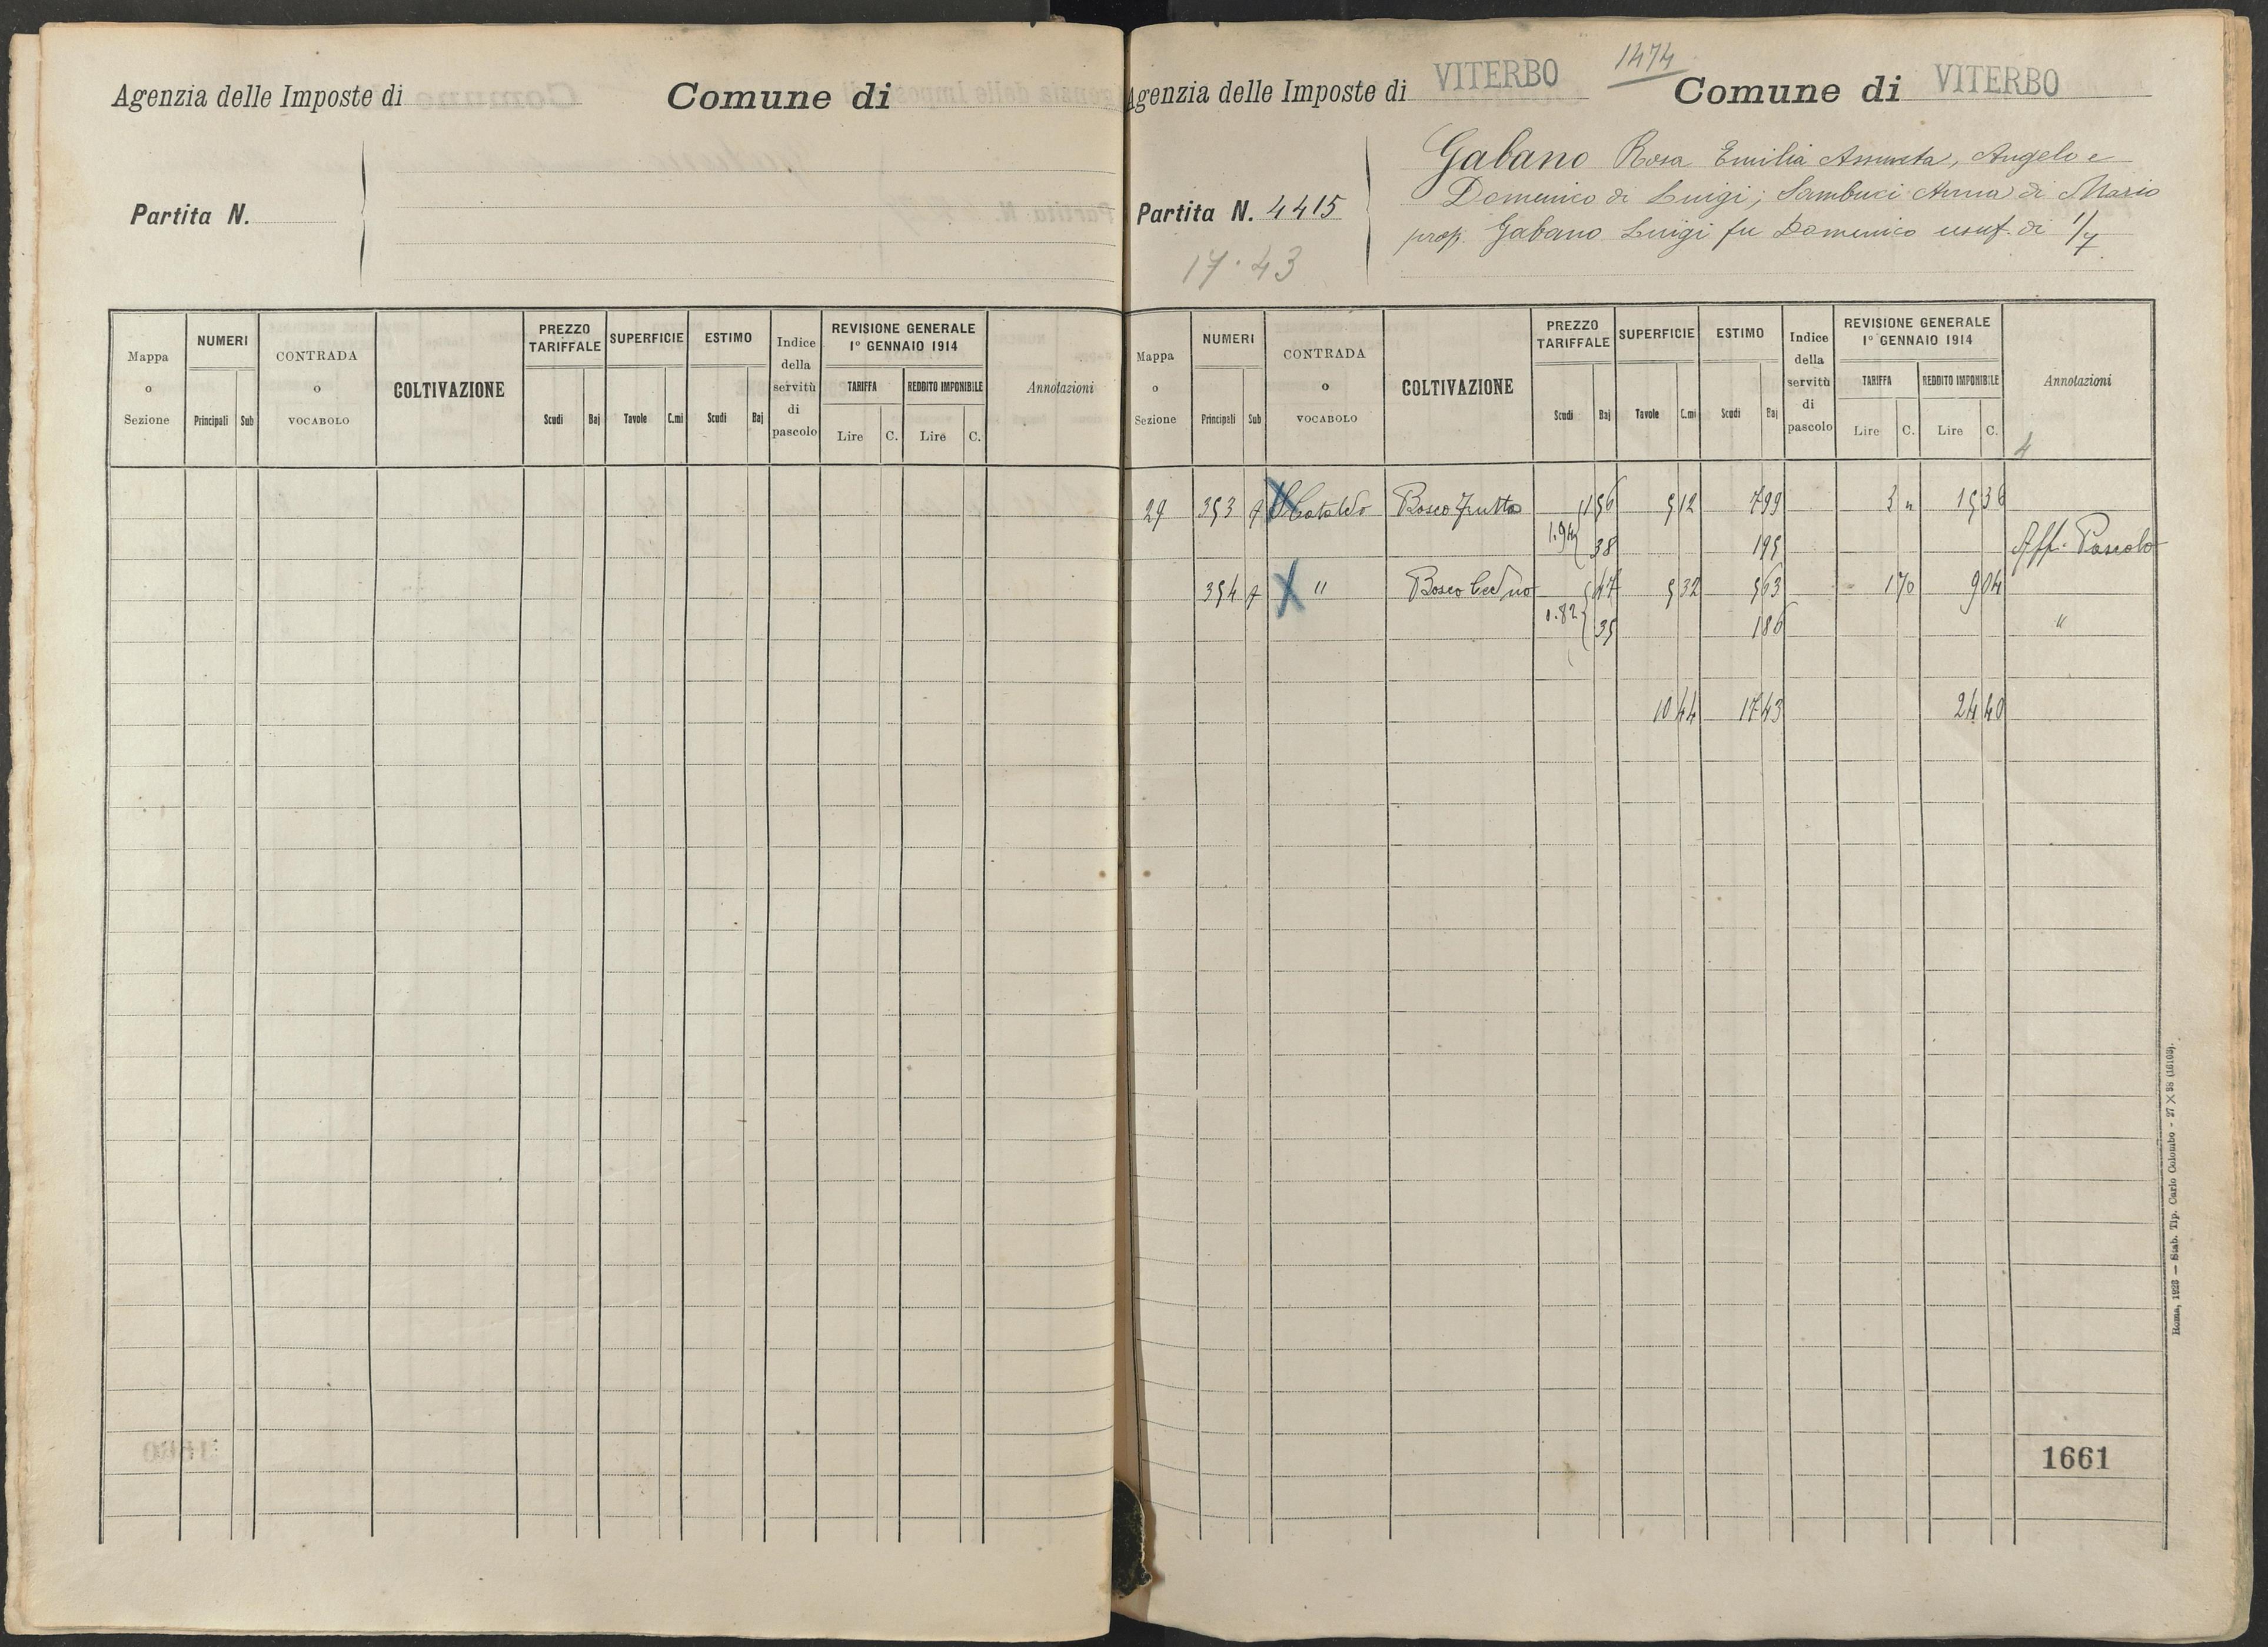 Agenzia delle Imposte di
Comune di
Partita N.
Mappa o Sezione
NUMERI
Principali
Sub
CONTRADA o VOCABOLO
COLTIVAZIONE
PREZZO TARIFFALE
Scudi
Baj
SUPERFICIE
Tavole
C.mi
ESTIMO
Scudi
Baj
Indice della servitù di pascolo
REVISIONE GENERALE
1° GENNAIO 1914
TARIFFA
REDDITO IMPONIBILE
Lire
C.
Lire
C.
Annotazioni
1474
Agenzia delle Imposte di VITERBO
Comune di VITERBO
Partita N. 4415
17.43
Gabano Rosa Emilia Assunta, Angelo e
Domenico di Luigi; Sambuci Anna di Mario
prop. Gabano Luigi fu Domenico usuf. di 1/7
Mappa o Sezione
NUMERI
Principali
Sub
CONTRADA o VOCABOLO
COLTIVAZIONE
PREZZO TARIFFALE
Scudi
Baj
SUPERFICIE
Tavole
C.mi
ESTIMO
Scudi
Baj
Indice della servitù di pascolo
REVISIONE GENERALE
1° GENNAIO 1914
TARIFFA
REDDITO IMPONIBILE
Lire
C.
Lire
C.
Annotazioni
4
29 353 S Cataldo Bosco frutto 1 56 5 12 7 99 3 " 15 36
1.94 38 1 95 Aff. Pascolo
354 " Bosco Ceduo 47 5 32 5 63 1 70 9 04
0.82 35 1 86 "
10 44 17 43 24 40
1661
Roma, 1923 — Stab. Tip. Carlo Colombo - 27 X 38 (16103).